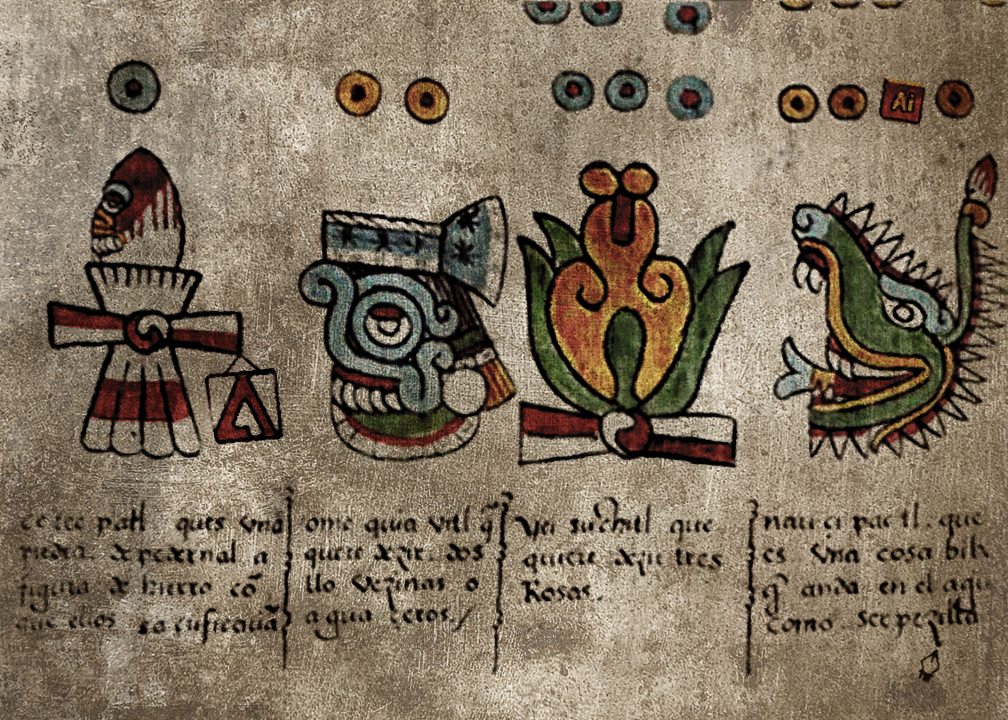 Ai
ce tec patl ques vna
piedra. de pedernal a
figura de hierro cõ
que ellos sacrificauã
ome quia vitl q̃
quiere dezir. dos
llo vezinas o
agua çeros./
Yei suchitl que
quiere dezir tres
Rosas.
naui çi pac tl. que
es vna cosa bib
q̃ anda. en el agu
como. serpezilla